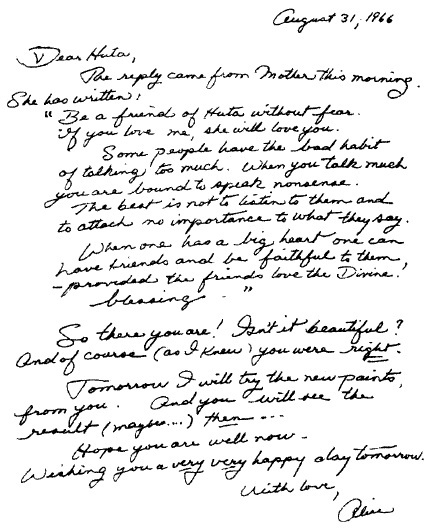 August 31, 1966
Dear Huta,
The reply came from Mother this morning.
She has written:
" Be a friend of Huta without fear.
If you love me, she will love you.
Some people have the bad habit
of talking too much. When you talk much
you are bound to speak nonsense.
The best is not to listen to them and
to attach no importance to what they say.
When one has a big heart one can
have friends and be faithful to them,
- provided the friends love the Divine!
blessing . "
So there you are! Isn't it beautiful?
And of course (as I knew) you were right.
Tomorrow I will try the new paints,
from you. And you will see the
result (maybe...) then ---
Hope you are well now -
Wishing you a very very happy day tomorrow.
With love,
Alice